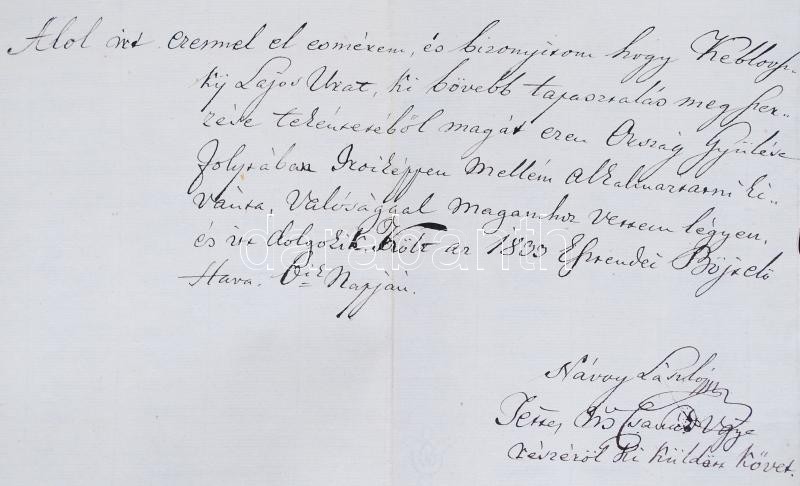 Alol irt ezennel el esmérem, és bizonyitom hogy Keblovsz-
kÿ Lajos Urat, ki bövebb tapasztalás meg szer-
zése tekéntetéböl magát ezen Ország Gyülése
folytában Iroiképpen Mellém alkalmaztatni ki-
vánta, Valósággal magamhoz vettem légyen,
és itt dolgozik. Költ az 1833 Esztendei Böjtelö
Hava. 6ik Napján.
Návay László
Tettes Csanád Vgye
részéröl Ki Küldött Követ.
darabanth